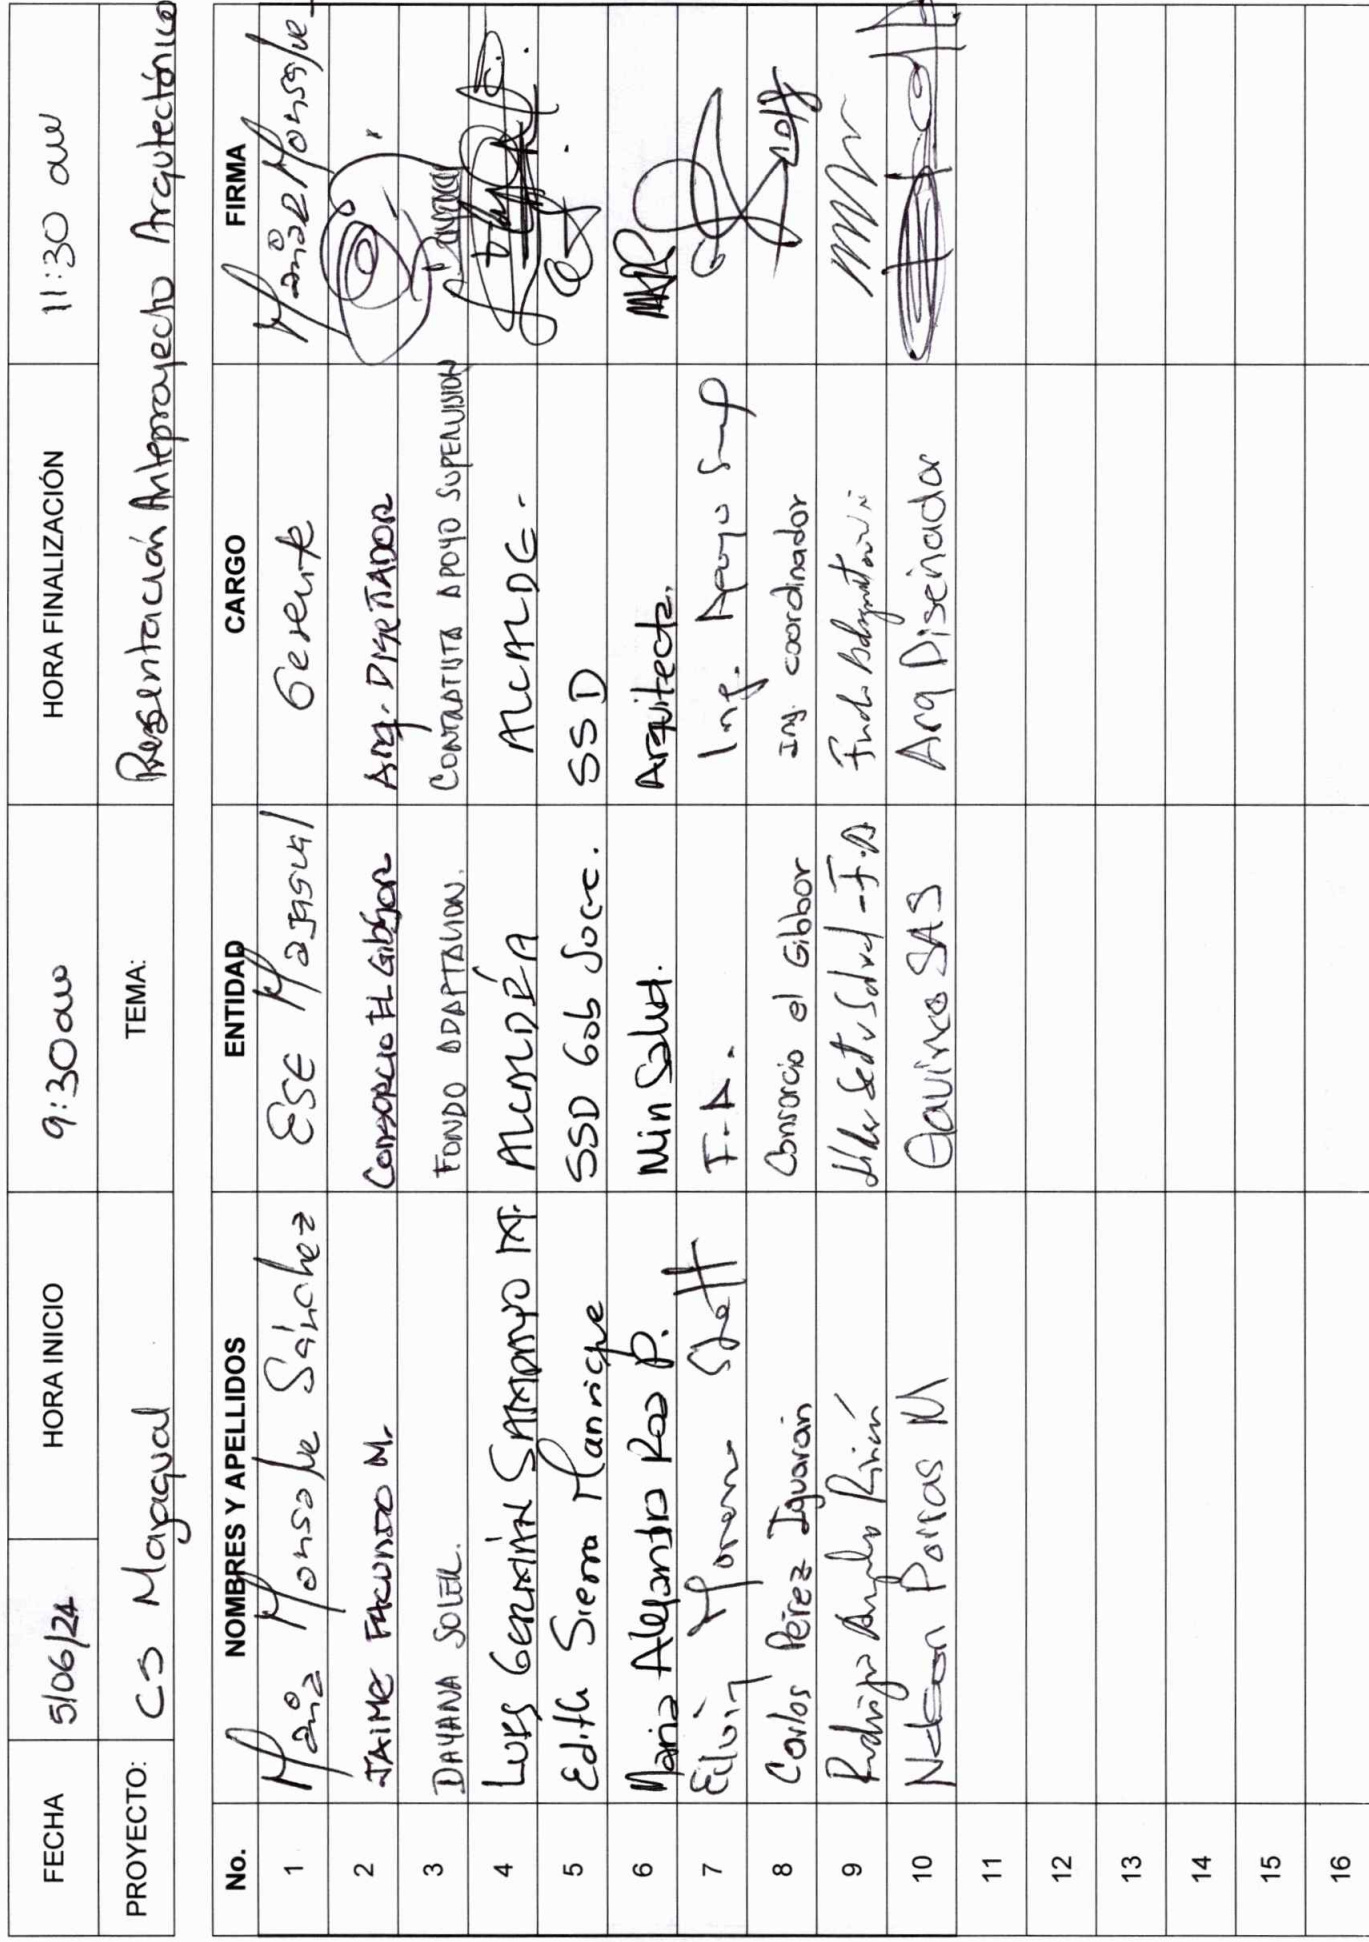 FECHA 5/06/24 HORA INICIO 9:30 am HORA FINALIZACIÓN 11:30 am
PROYECTO: CS Majagual TEMA: Presentación Anteproyecto Arquitectónico
No. NOMBRES Y APELLIDOS ENTIDAD CARGO FIRMA
1 María Monsalve Sánchez ESE Majagual Gerente María Monsalve
2 JAIME FACUNDO M. Consorcio El Gibbor Arq. DISEÑADOR
3 DAYANA SOLER. FONDO ADAPTACION. CONTRATISTA APOYO SUPERVISION
4 LUIS GERMÁN SAMPAYO ALCALDÍA ALCALDE.
5 Edith Sierra Manrique SSD Gob Sucre. SSD
6 Maria Alejandra Roa P. Min Salud. Arquitecta. MARP
7 F.A. Ing. Apoyo Sup
8 Carlos Pérez Iguarán Consorcio el Gibbor Ing. coordinador
9 Rodrigo Angulo Rincón Líder Sector Salud - F.A
10 Nelson Porras M SAS Arq Diseñador
11
12
13
14
15
16